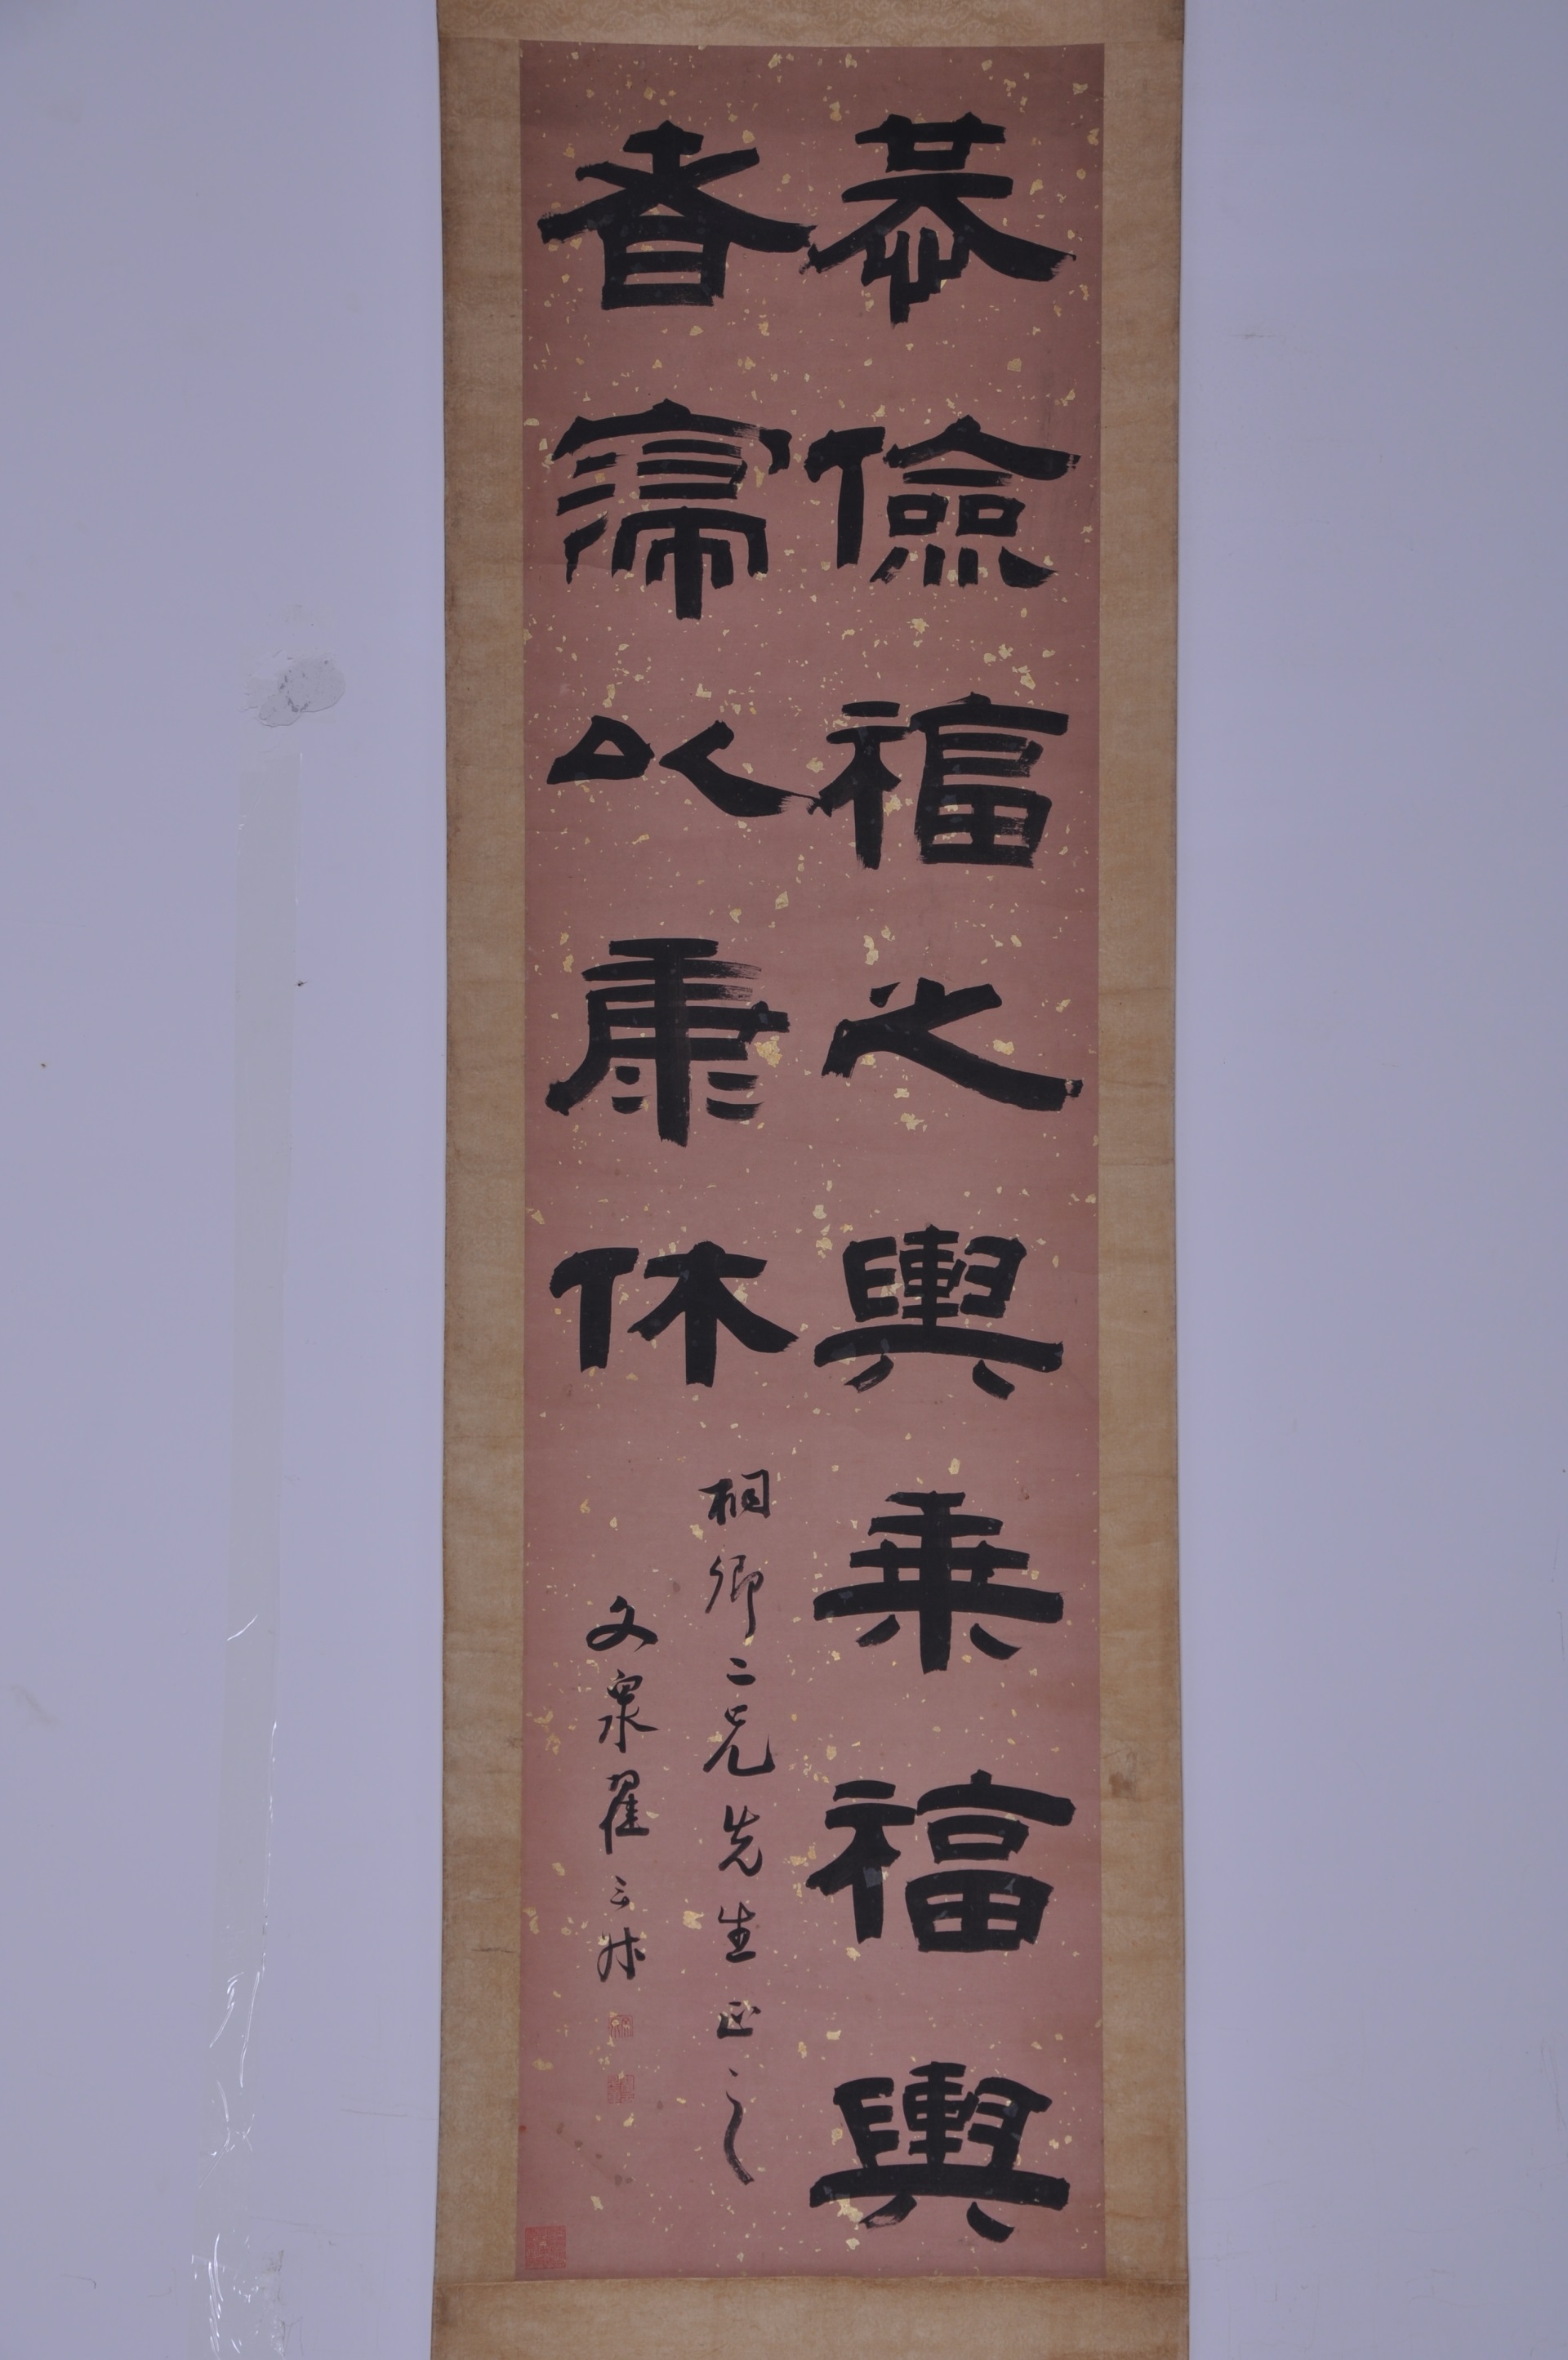 恭儉福之輿乘福輿
者寢以康休
桐卿二兄先生正之
文泉翟云升